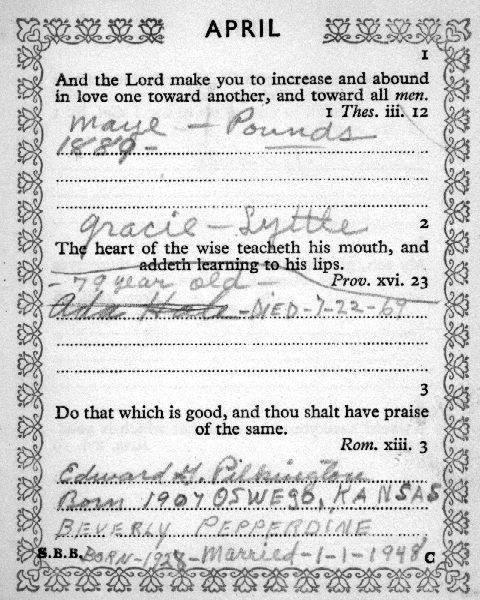 APRIL
1
And the Lord make you to increase and abound
in love one toward another, and toward all men.
1 Thes. iii. 12
Maye - Pounds
1889-
Gracie - Lyttle
2
The heart of the wise teacheth his mouth, and
addeth learning to his lips.
Prov. xvi. 23
- 79 year old -
Ada - DIED-7-22-69
3
Do that which is good, and thou shalt have praise
of the same.
Rom. xiii. 3
Edward G. Pilkington
Born 1907 OSWEGO, KANSAS
BEVERLY PEPPERDINE
S.B.B. BORN-1928-Married-1-1-1948 C